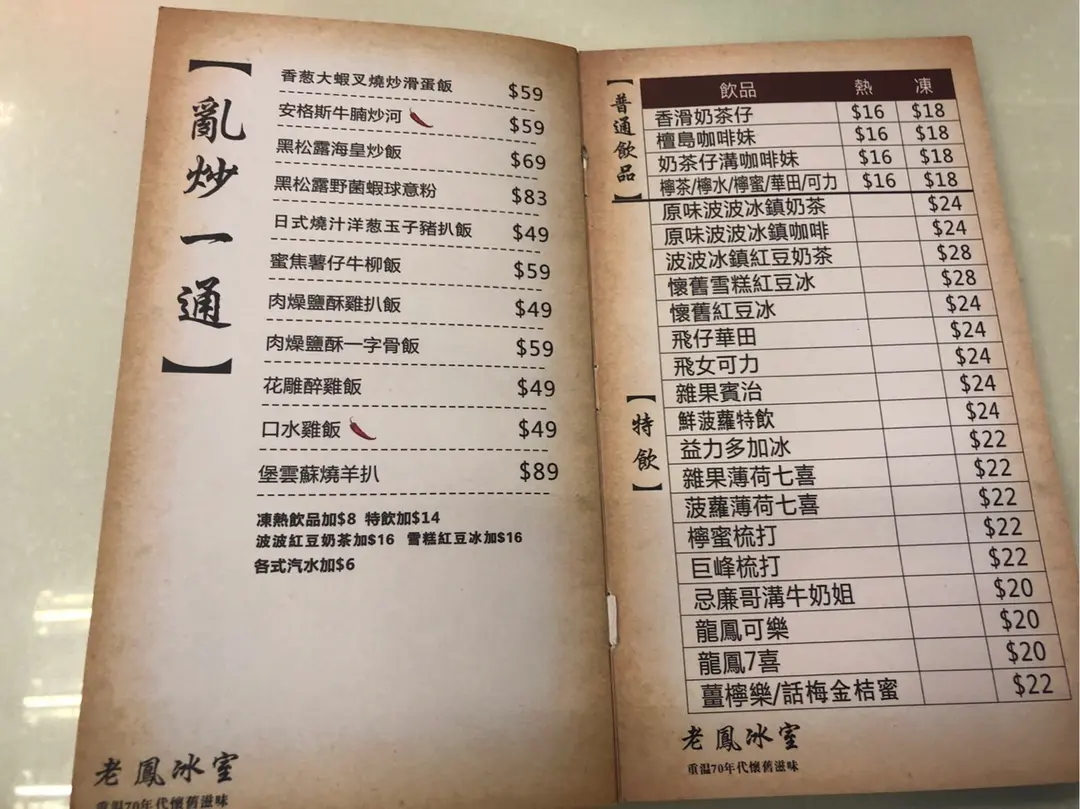 【亂炒一通】
香葱大蝦叉燒炒滑蛋飯 $59
安格斯牛腩炒河 $59
黑松露海皇炒飯 $69
黑松露野菌蝦球意粉 $83
日式燒汁洋葱玉子豬扒飯 $49
蜜焦薯仔牛柳飯 $59
肉燥鹽酥雞扒飯 $49
肉燥鹽酥一字骨飯 $59
花雕醉雞飯 $49
口水雞飯 $49
堡雲蘇燒羊扒 $89
凍熱飲品加$8 特飲加$14
波波紅豆奶茶加$16 雪糕紅豆冰加$16
各式汽水加$6
老鳳冰室
重温70年代懷舊滋味
【普通飲品】
飲品 熱 凍
香滑奶茶仔 $16 $18
檀島咖啡妹 $16 $18
奶茶仔溝咖啡妹 $16 $18
檸茶/檸水/檸蜜/華田/可力 $16 $18
【特飲】
原味波波冰鎮奶茶 $24
原味波波冰鎮咖啡 $24
波波冰鎮紅豆奶茶 $28
懷舊雪糕紅豆冰 $28
懷舊紅豆冰 $24
飛仔華田 $24
飛女可力 $24
雜果賓治 $24
鮮菠蘿特飲 $24
益力多加冰 $22
雜果薄荷七喜 $22
菠蘿薄荷七喜 $22
檸蜜梳打 $22
巨峰梳打 $22
忌廉哥溝牛奶姐 $20
龍鳳可樂 $20
龍鳳7喜 $20
薑檸樂/話梅金桔蜜 $22
老鳳冰室
重温70年代懷舊滋味